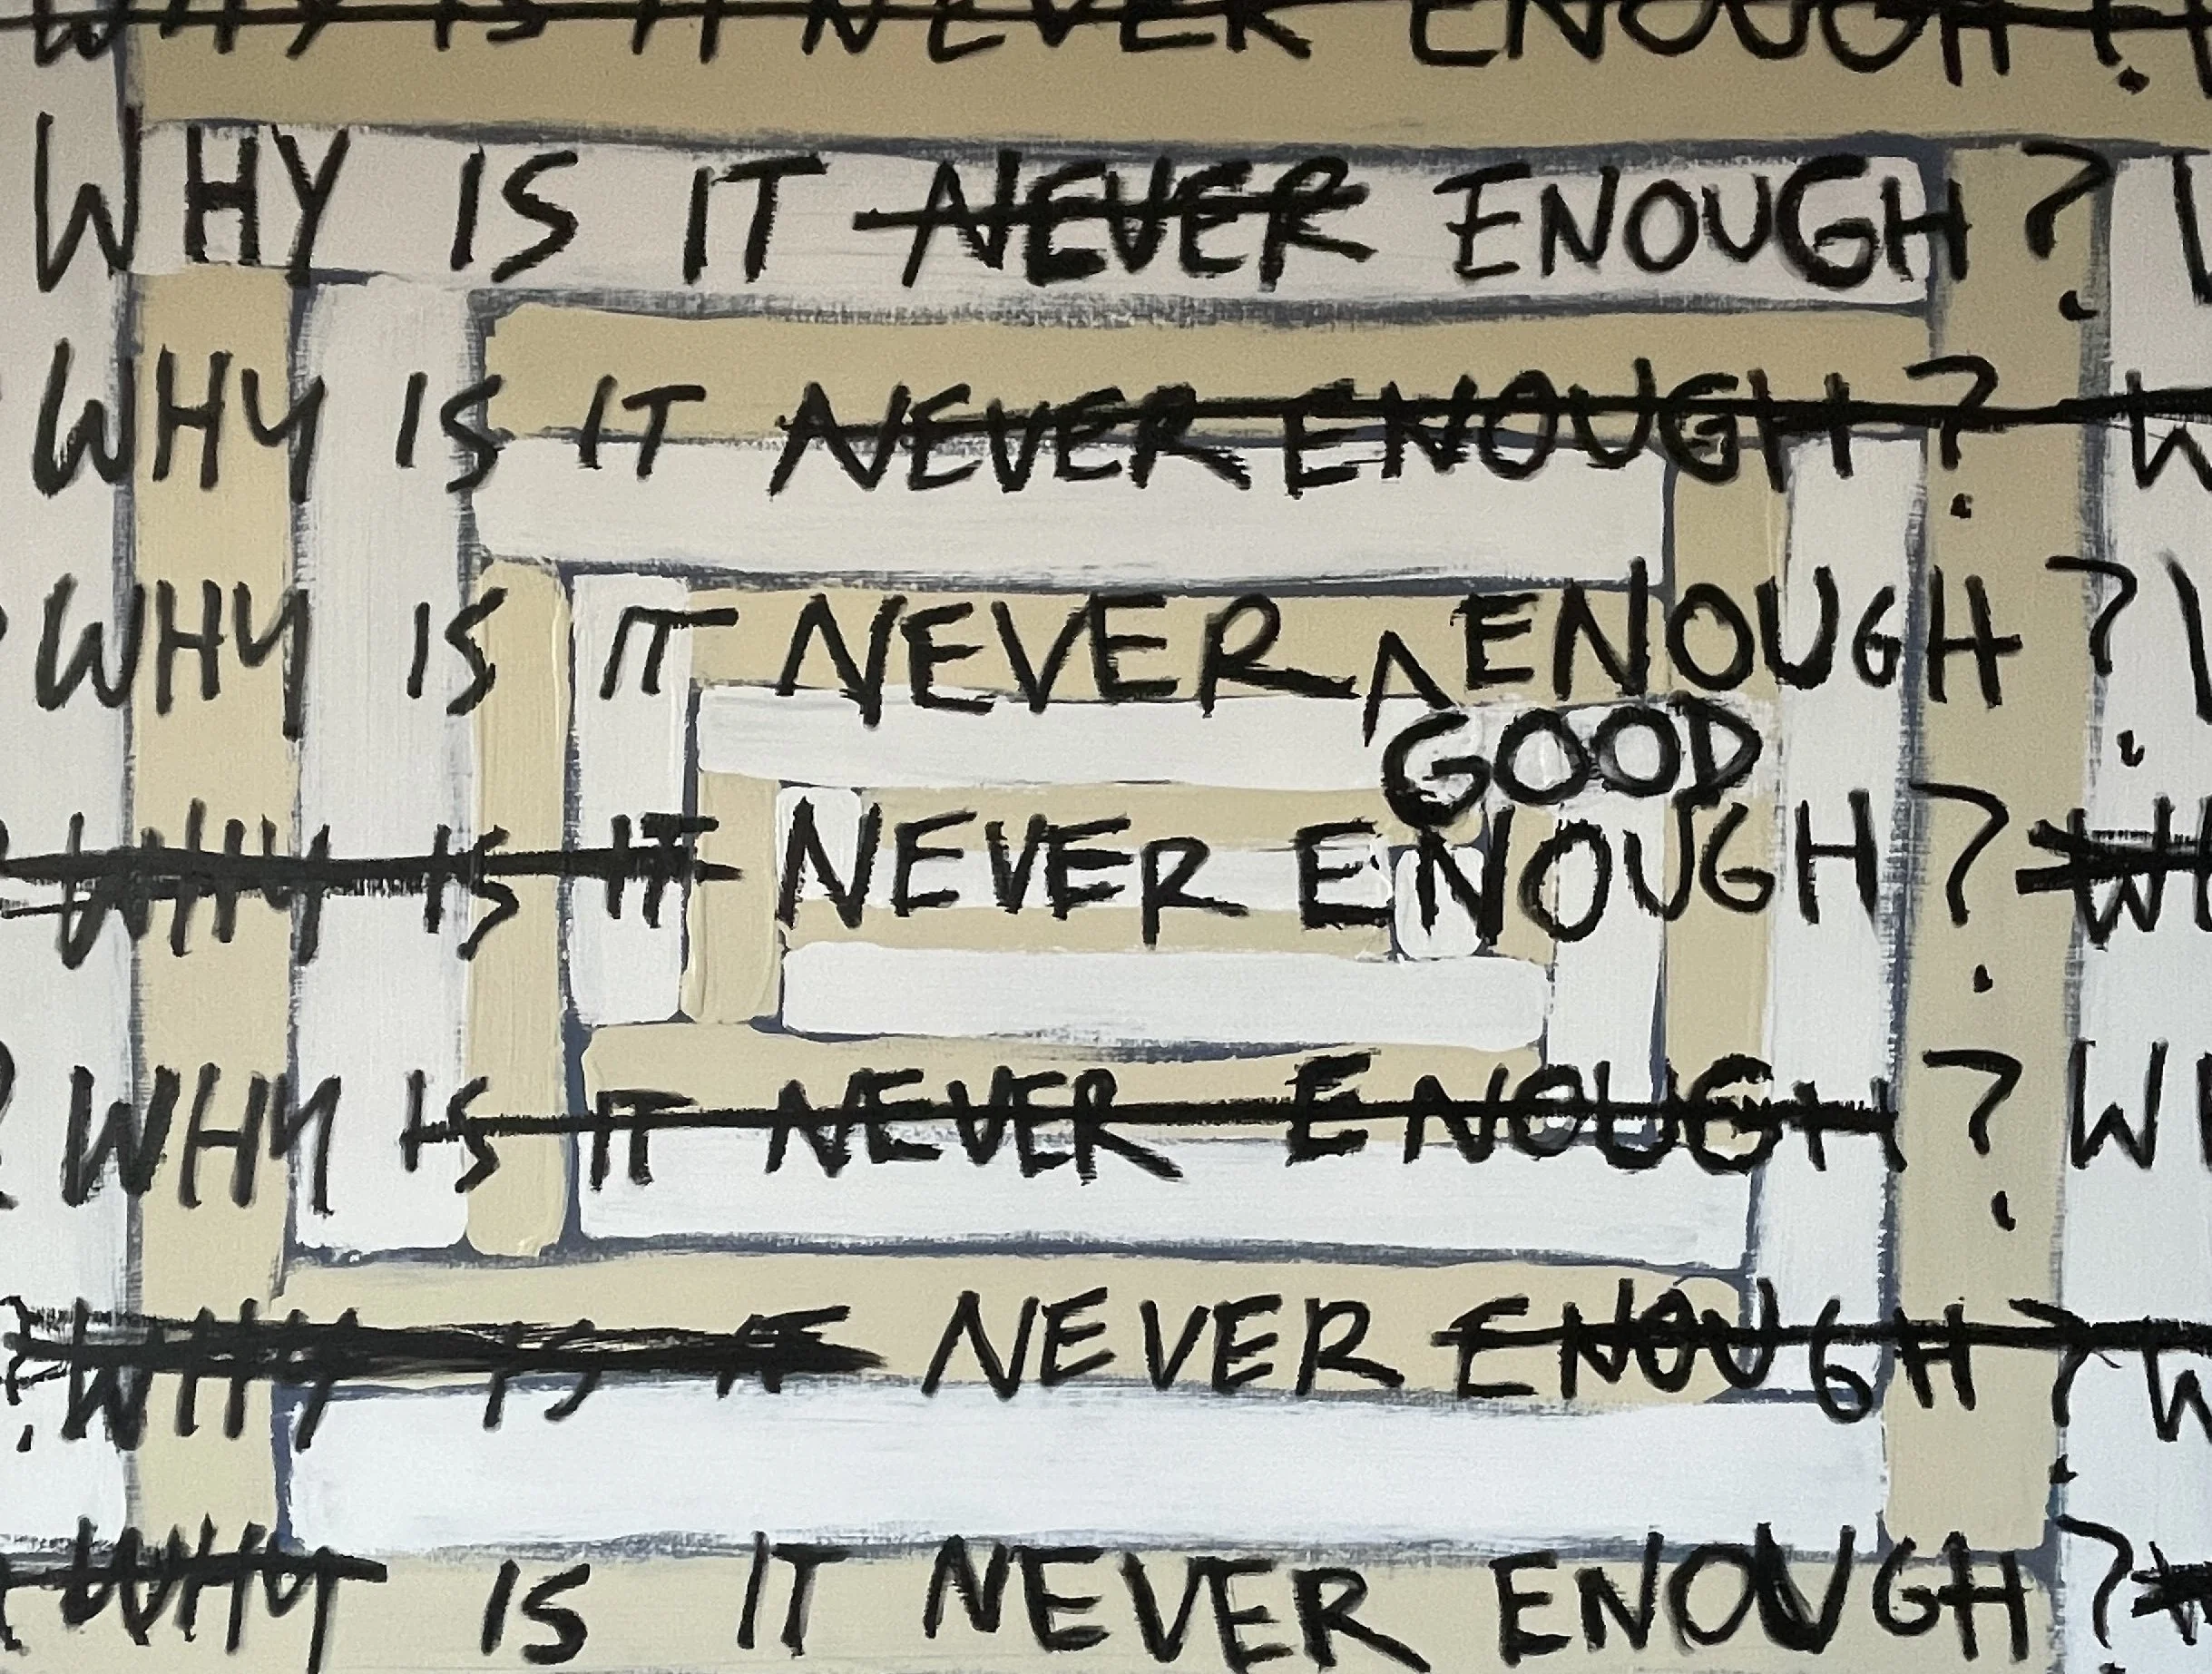 WHY IS IT NEVER ENOUGH?
WHY IS IT NEVER ENOUGH?
WHY IS IT NEVER ENOUGH? W
WHY IS IT NEVER ^ ENOUGH?
GOOD
WHY IS IT NEVER ENOUGH? WH
? WHY IS IT NEVER ENOUGH? WH
? WHY IS IT NEVER ENOUGH? W
WHY IS IT NEVER ENOUGH?